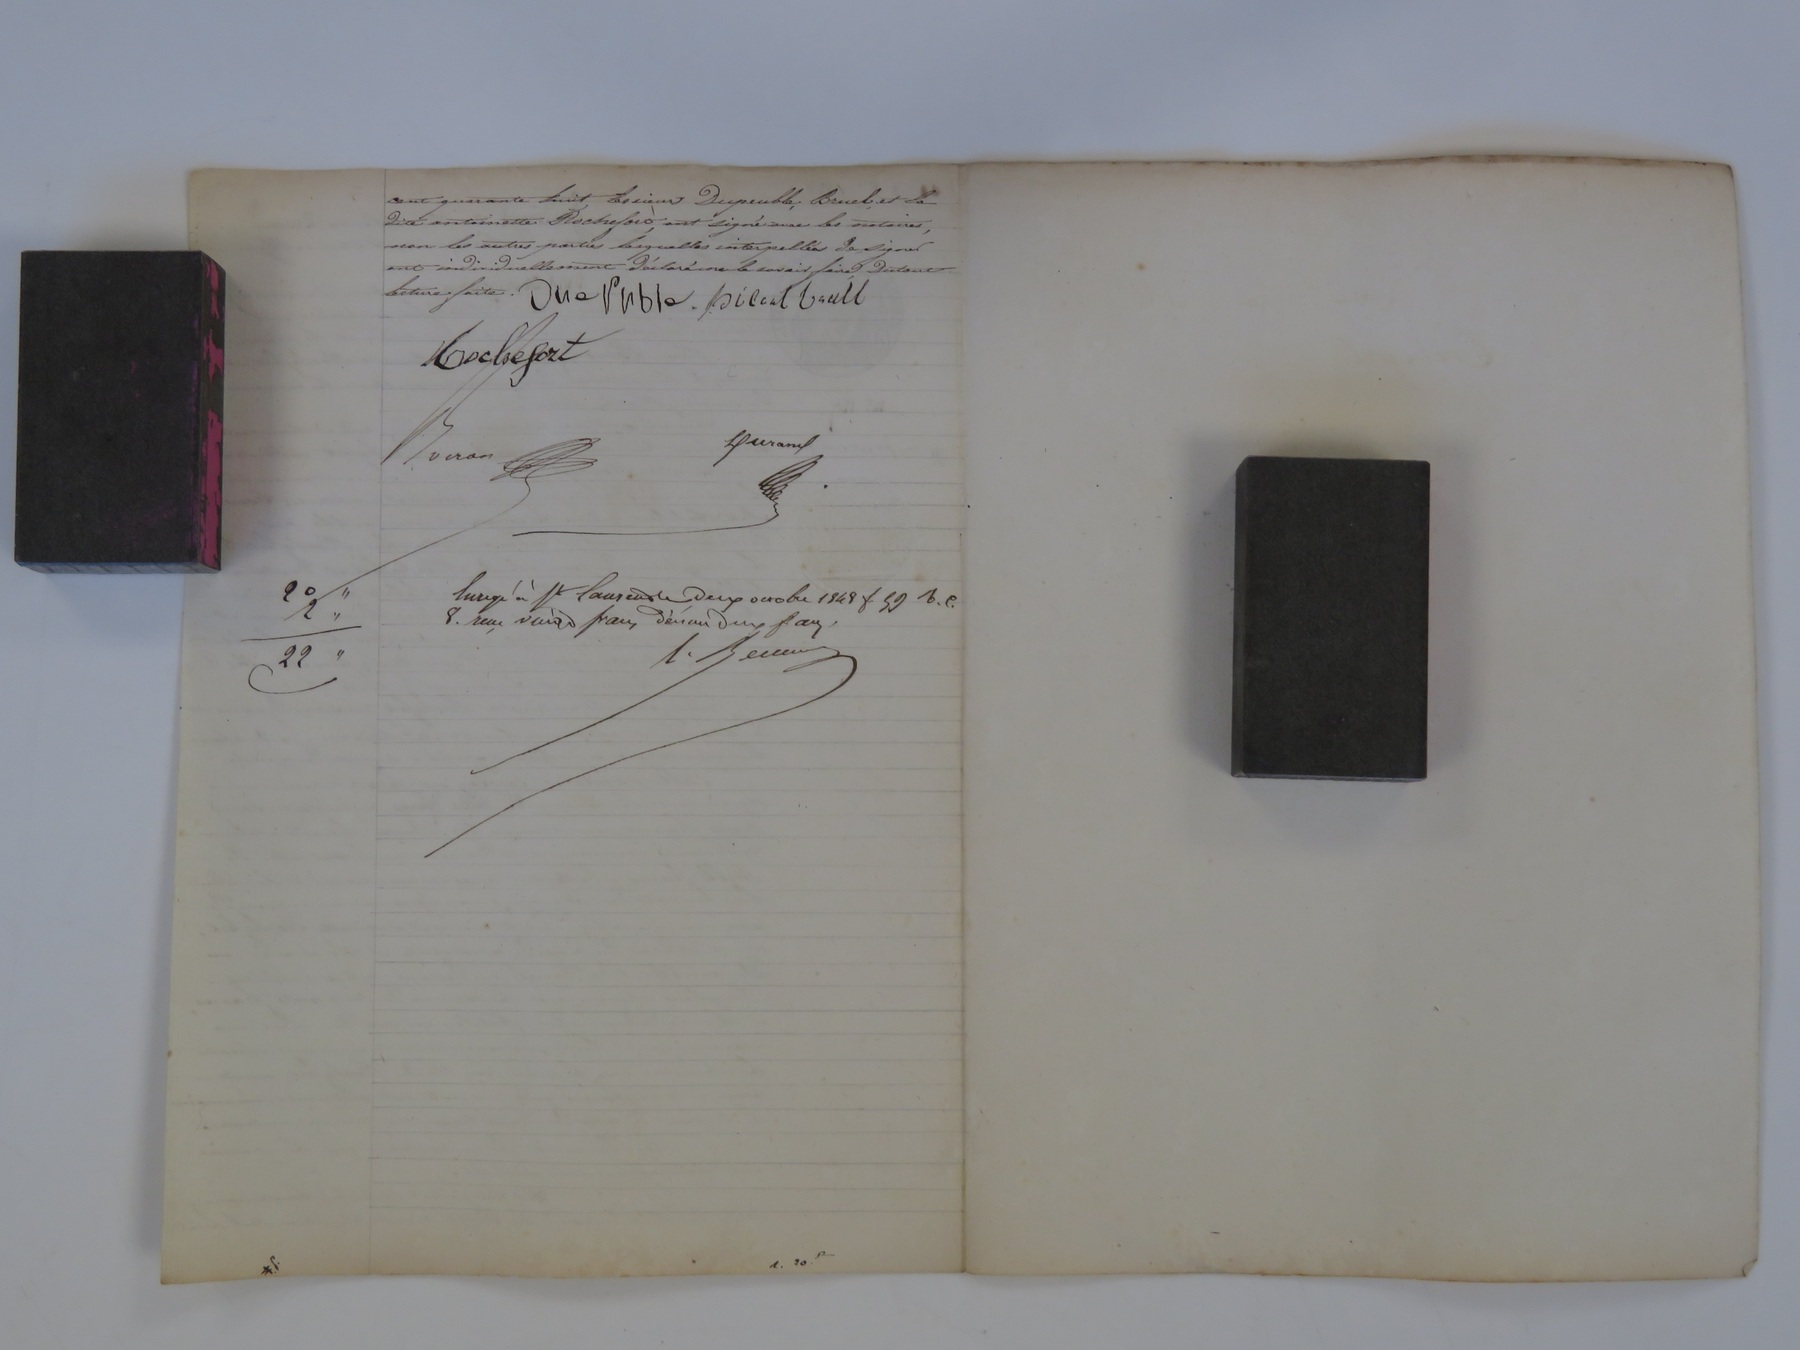 cent quarante huit, les sieurs Dupeuble, Bruel, et la
dite antoinette Rochefort, ont signé avec les notaires,
non les autres parties lesquelles interpellées de signer
ont individuellement déclaré ne le savoir faire, dutout
lecture faite.
Rochefort
Durand
20 "
2 "
22 "
Enregé à St Laurent le deux octobre 1848 f 59 V. C.
8. reçu vingt francs décime deux francs.